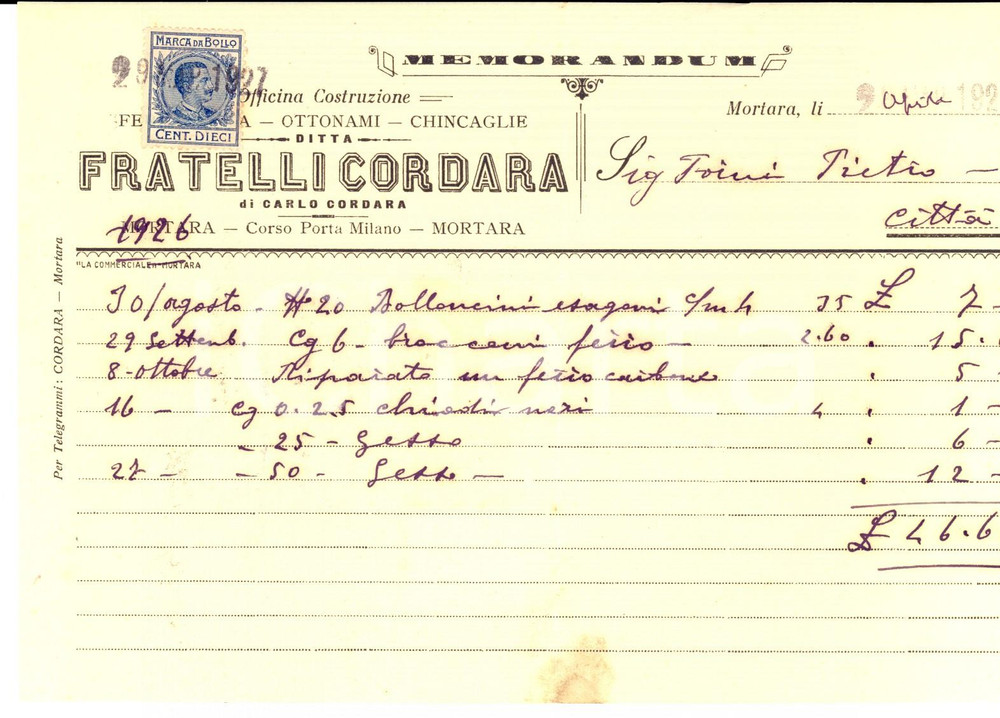 MARCA DA BOLLO
CENT. DIECI
1927
MEMORANDUM
Officina Costruzione
FE A — OTTONAMI — CHINCAGLIE
DITTA
FRATELLI CORDARA
di CARLO CORDARA
MORTARA — Corso Porta Milano — MORTARA
1926
"LA COMMERCIALE" - MORTARA
Per Telegrammi: CORDARA — Mortara
Mortara, li Aprile 192
Sig Pietro —
Città
30/agosto - N 20 Bolloncini esagoni c/m 4 35 £ 7 -
29 Settemb. Cg 6 - ferro — 2.60 " 15.6
8 - ottobre Riparato un ferro carbone " 5 -
16 - Cg 0.25 chiodi neri 4 " 1 -
- 25 - Gesso " 6 -
27 - - 50 - Gesso — " 12 -
£ 46.6